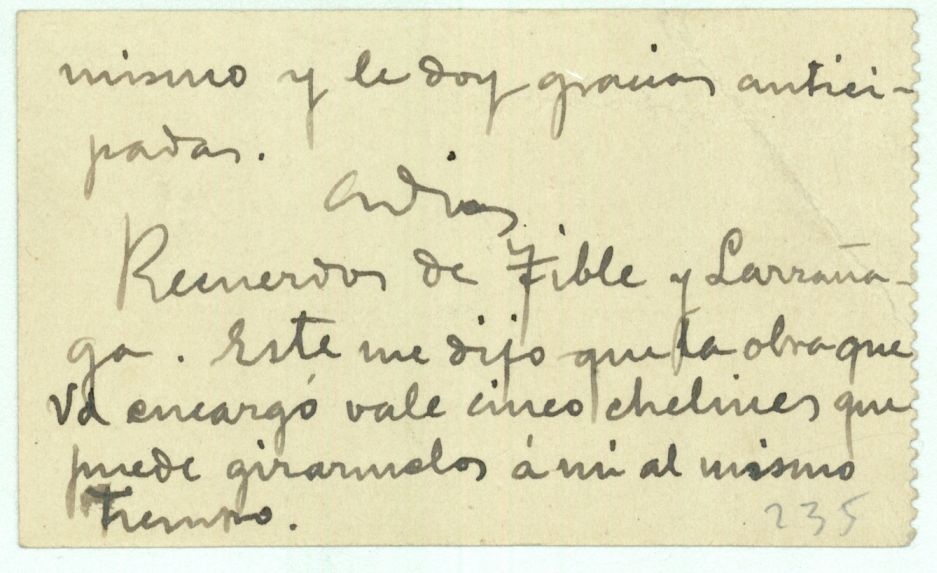 mismo y le doy gracias antici-
padas.
Adios
Recuerdos de Fible y Larraña-
ga. Este me dijo que la obra que
Vd encargó vale cinco chelines que
puede girarmelos á mi al mismo
tiempo.
235